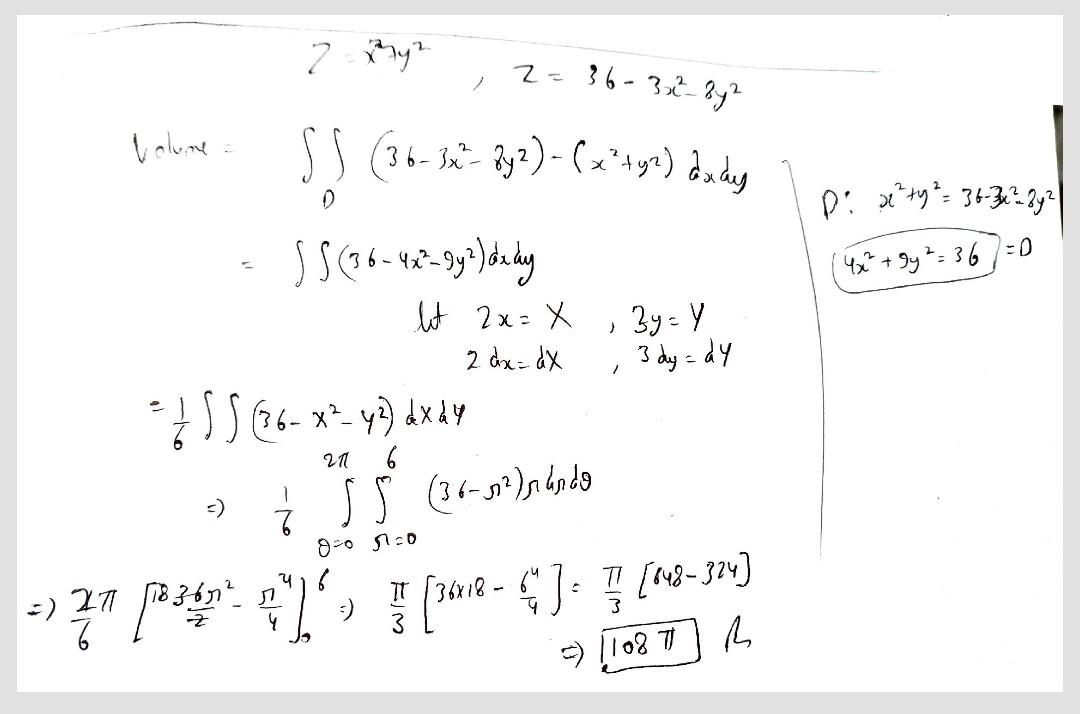 Z = x²+y² , Z = 36 - 3x² - 8y²
Volume = ∫∫_D (36 - 3x² - 8y²) - (x²+y²) dxdy
= ∫∫ (36 - 4x² - 9y²) dxdy
let 2x = X , 3y = Y
2 dx = dX , 3 dy = dY
= 1/6 ∫∫ (36 - X² - Y²) dXdY
=) 1/6 ∫_{θ=0}^{2π} ∫_{r=0}^{6} (36 - r²) r dr dθ
=) 2π/6 [18 36r²/2 - r⁴/4]₀⁶ =) π/3 [36×18 - 6⁴/4] = π/3 [648 - 324]
=) 108 π
D: x²+y² = 36-3x²-8y²
4x² + 9y² = 36 = D